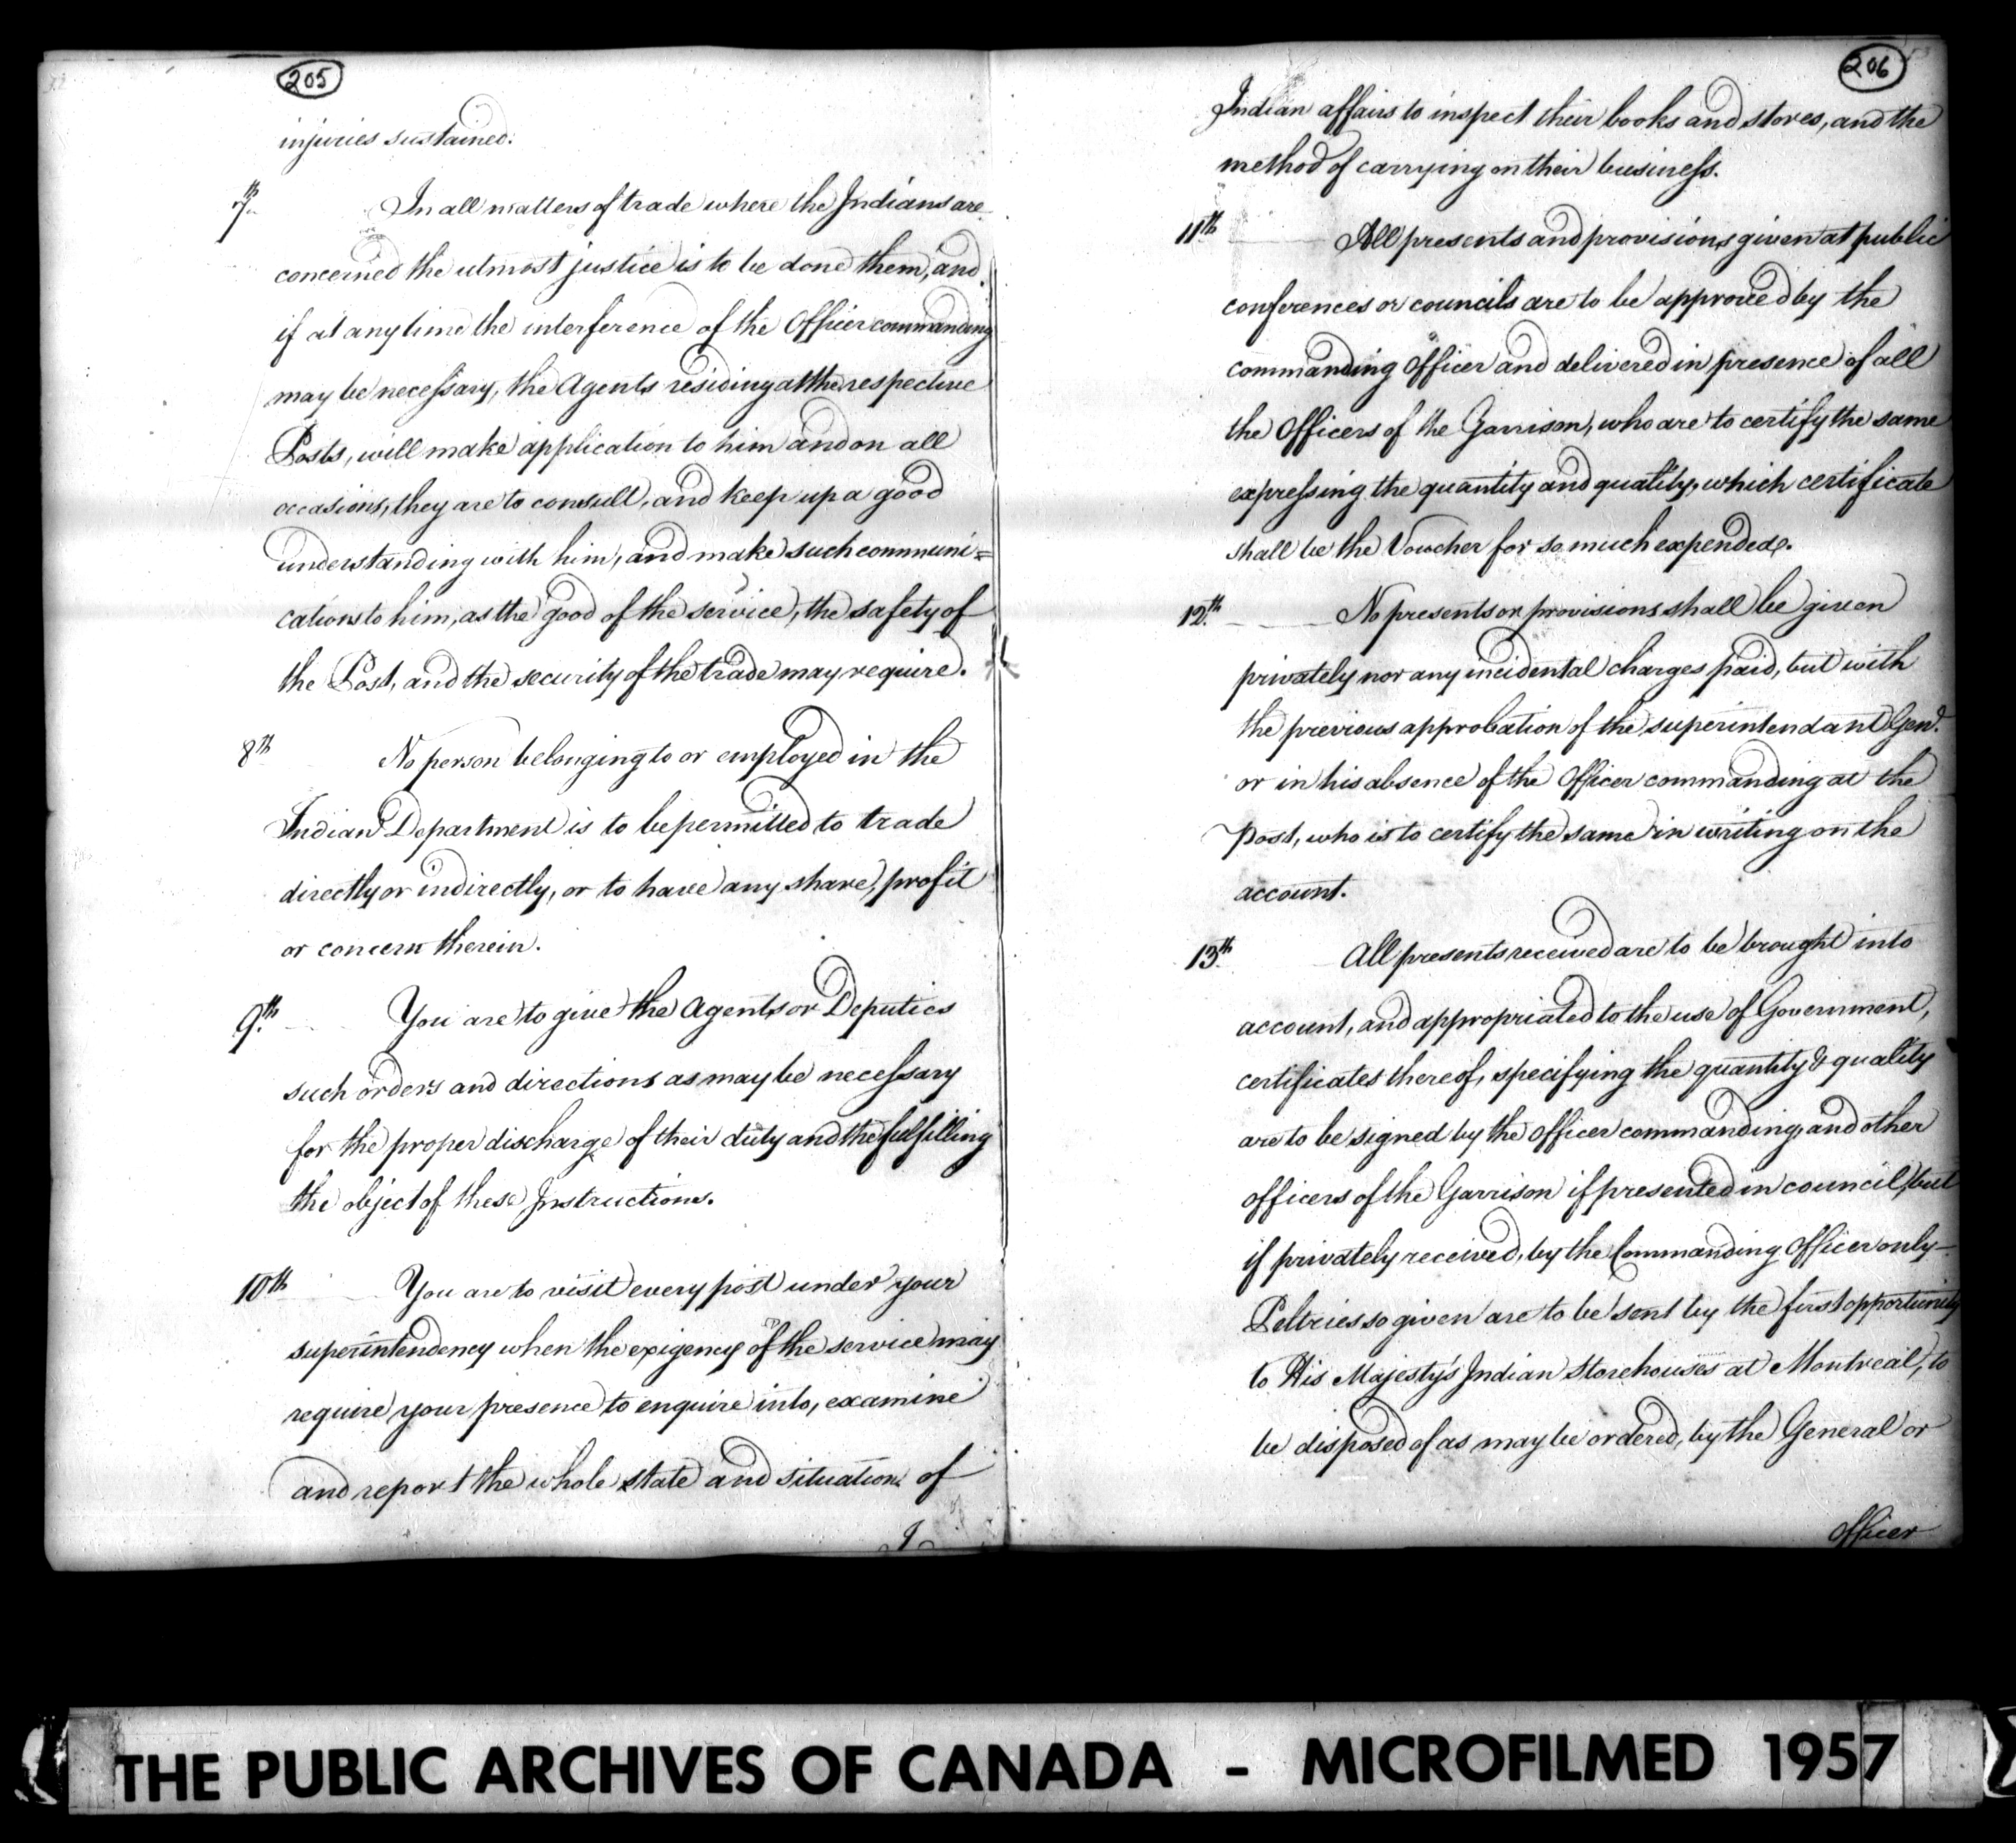 205
injuries sustained.
7th In all matters of trade where the Indians are
concerned the utmost justice is to be done them, and
if at any time the interference of the Officer commanding
may be necessary, the Agents residing at the respective
Posts, will make application to him and on all
occasions, they are to consult, and keep up a good
understanding with him, and make such communi=
cations to him, as the good of the service, the safety of
the Post, and the security of the trade may require.
8th No person belonging to or employed in the
Indian Department is to be permitted to trade
directly or indirectly, or to have any share, profit
or concern therein.
9th You are to give the Agents or Deputies
such orders and directions as may be necessary
for the proper discharge of their duty and the fulfilling
the object of these Instructions.
10th You are to visit every post under your
superintendency when the exigency of the service may
require your presence to enquire into, examine
and report the whole state and situation of
206
Indian affairs to inspect their books and stores, and the
method of carrying on their business.
11th All presents and provisions given at public
conferences or councils are to be approved by the
commanding Officer and delivered in presence of all
the Officers of the Garrison, who are to certify the same
expressing the quantity and quality, which certificate
shall be the Voucher for so much expended.
12th No presents or provisions shall be given
privately nor any incidental charges paid, but with
the previous approbation of the superintendant Genl.
or in his absence of the Officer commanding at the
Post, who is to certify the same in writing on the
account.
13th All presents received are to be brought into
account, and appropriated to the use of Government,
certificates thereof, specifying the quantity & quality
are to be signed by the Officer commanding, and other
officers of the Garrison if presented in council, but
if privately received, by the Commanding Officer only—
Peltries so given are to be sent by the first opportunity
to His Majesty's Indian Storehouses at Montreal, to
be disposed of as may be ordered, by the General or
Officer
THE PUBLIC ARCHIVES OF CANADA - MICROFILMED 1957